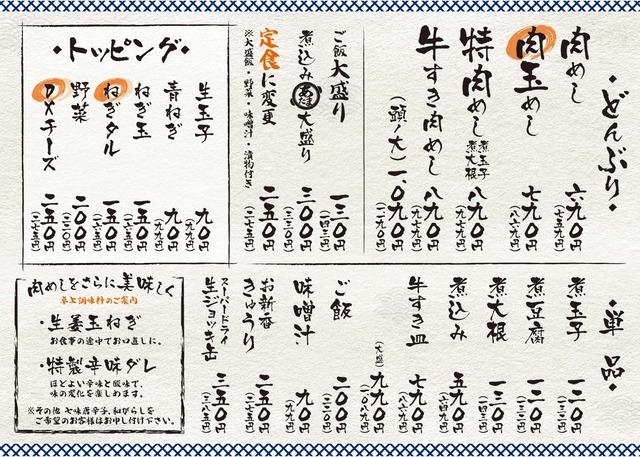 ・どんぶり・
肉めし 六九〇円
(七五九円)
肉玉めし 七九〇円
(八六九円)
特肉めし 煮玉子 煮大根 八九〇円
(九七九円)
牛すき肉めし 八九〇円
(九七九円)
(頭ノ大) 一、〇九〇円
(一一九九円)
ご飯大盛り 一三〇円
(一四三円)
煮込み 大盛り 三〇〇円
(三三〇円)
定食に変更 二五〇円
(二七五円)
※大盛飯・野菜・味噌汁・漬物付き
・トッピング・
生玉子 九〇円
(九九円)
青ねぎ 九〇円
(九九円)
ねぎ玉 一五〇円
(一六五円)
ねぎダル 一五〇円
(一六五円)
野菜 二〇〇円
(二二〇円)
DXチーズ 二五〇円
(二七五円)
・単品・
煮玉子 一二〇円
(一三二円)
煮豆腐
煮大根 一三〇円
(一四三円)
煮込み 五九〇円
(六四九円)
牛すき皿 七九〇円
(八六九円)
(大盛) 九九〇円
(一〇八九円)
ご飯 二〇〇円
(二二〇円)
味噌汁 九〇円
(九九円)
お新香
きゅうり 二五〇円
(二七五円)
スーパードライ
生ジョッキ缶 三五〇円
(三八五円)
肉めしをさらに美味しく
卓上調味料のご案内
・生姜玉ねぎ
お食事の途中でお口直しに。
・特製辛味ダレ
ほどよい辛味と酸味で、
味の変化を楽しめます。
※その他 七味唐辛子、和がらしを
ご希望のお客様はお申し付け下さい。